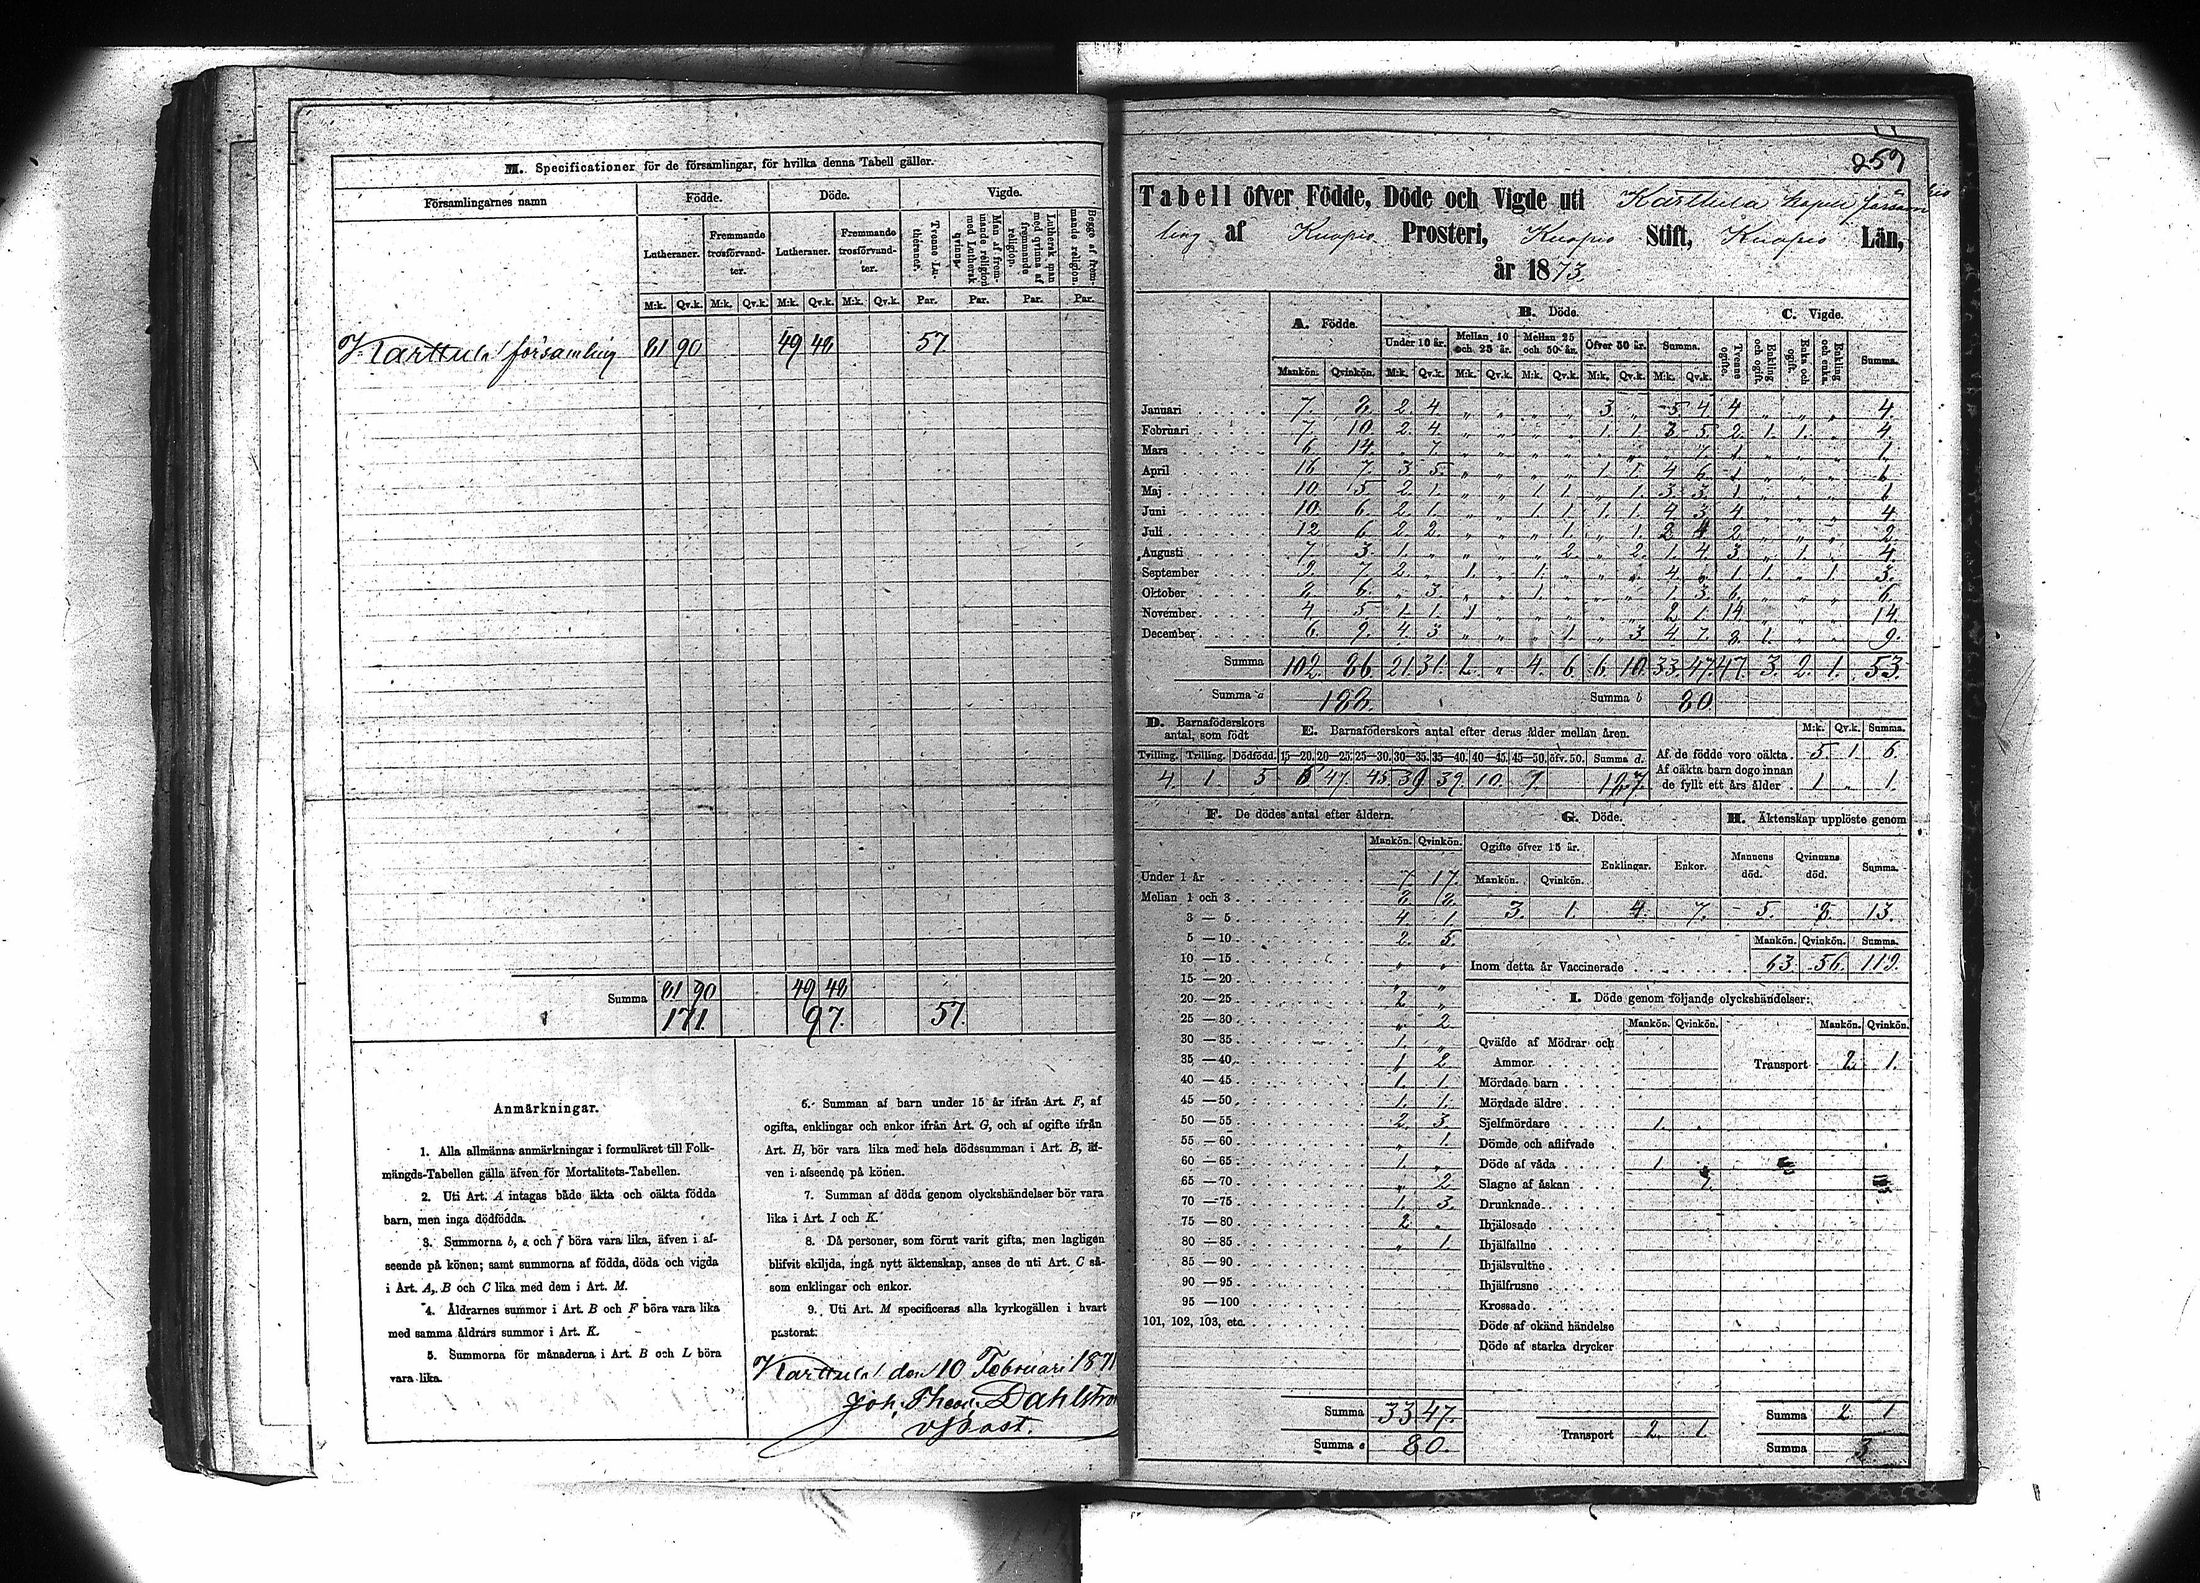 M. Specificationer för de församlingar, för hvilka denna Tabell gäller.
Församlingarnes namn
Födde. Döde. Vigde.
Lutheraner. Fremmande trosförvandter. Lutheraner. Fremmande trosförvandter. Trenne Lutheraner. Man af fremmande religion med Luthersk qvinna. Luthersk man med qvinna af fremmande religion. Begge af fremmande religion.
M:k. Qv.k. M:k. Qv.k. M:k. Qv.k. M:k. Qv.k. Par. Par. Par. Par.
Karttula församling 81 90 49 48 57.
Summa 81 90 49 48
171. 97. 57.
Anmärkningar.
1. Alla allmänna anmärkningar i formuläret till Folk-
mängds-Tabellen gälla äfven för Mortalitets-Tabellen.
2. Uti Art. A intagas både äkta och oäkta födda
barn, men inga dödfödda.
3. Summorna b, e och f böra vara lika, äfven i af-
seende på könen; samt summorna af födda, döda och vigda
i Art. A, B och C lika med dem i Art. M.
4. Åldrarnes summor i Art. B och F böra vara lika
med samma åldrars summor i Art. K.
5. Summorna för månaderna i Art. B och L böra
vara lika.
6. Summan af barn under 15 år ifrån Art. F, af
ogifta, enklingar och enkor ifrån Art. G, och af ogifte ifrån
Art. H, bör vara lika med hela dödssumman i Art. B, äf-
ven i afseende på könen.
7. Summan af döda genom olyckshändelser bör vara
lika i Art. I och K.
8. Då personer, som förut varit gifta, men lagligen
blifvit skiljda, ingå nytt äktenskap, anses de uti Art. C så-
som enklingar och enkor.
9. Uti Art. M specificeras alla kyrkogällen i hvart
pastorat.
Karttula den 10 Februari 187
Joh. Theod. Dahlström
v Past.
259
Tabell öfver Födde, Döde och Vigde uti Karttula kapell församling
af Kuopio Prosteri, Kuopio Stift, Kuopio Län,
år 1873.
A. Födde. B. Döde. C. Vigde.
Under 10 år. Mellan 10 och 25 år. Mellan 25 och 50 år. Öfver 50 år. Summa. Trenne ogifte. Enkling och ogift. Enka och ogift. Enkling och enka. Summa.
Mankön. Qvinkön. M:k. Qv.k. M:k. Qv.k. M:k. Qv.k. M:k. Qv.k. M:k. Qv.k.
Januari 7. 8. 2. 4. „ „ „ „ 3. „ 5 4. 4 „ „ „ 4.
Februari 7. 10. 2. 4. „ „ „ „ 1. 1. 3. 5. 2. 1. 1. „ 4.
Mars 6 14. „ 7 „ „ „ „ „ „ „ 7. 1 „ „ „ 1.
April 16 7. 3. 5. „ „ „ „ 1 1. 4 6. 1 „ „ „ 1.
Maj 10. 5. 2. 1. „ „ 1. 1. „ 1. 3. 3. 1 „ „ „ 1.
Juni 10. 6. 2. 1. „ „ 1. 1. 1. 1. 4 3. 4 „ „ „ 4
Juli 12. 6. 2. 2. „ „ „ 1. „ 1. 2 4 2. „ „ „ 2.
Augusti 7. 3. 1. „ „ „ „ 2. „ 2. 1. 4. 3. „ 1. „ 4.
September 9. 7. 2. „ 1. „ 1. „ „ „ 4. „ 1. 1. „ 1. 3.
Oktober 8. 6. „ 3. „ „ 1. „ „ „ 1. 3. 6. „ „ „ 6.
November 4. 5. 1. 1. 1 2. 1. 14. „ „ „ 14.
December 6. 9. 4. 3 „ „ „ 1. „ 3 4 7. 8. 1. „ „ 9.
Summa 102. 86. 21. 31. 2. „ 4. 6. 6. 10. 33. 47. 47. 3. 2. 1. 53.
Summa a 188. Summa b 80.
D. Barnaföderskors antal, som födt
E. Barnaföderskors antal efter deras ålder mellan åren.
Tvilling. Trilling. Dödfödd. 15—20. 20—25. 25—30. 30—35. 35—40. 40—45. 45—50. öfv. 50. Summa d.
4. 1. 5 6 47 45. 39 39. 10. 7. 187.
M:k. Qv.k. Summa.
Af de födde voro oäkta. 5. 1. 6.
Af oäkta barn dogo innan de fyllt ett års ålder 1 „ 1.
F. De dödes antal efter åldern.
Mankön. Qvinkön.
Under 1 år 7. 17.
Mellan 1 och 3 8. 8.
3 — 5 4. 1.
5 — 10 2. 5.
10 — 15 „ „
15 — 20 „ „
20 — 25 2 „
25 — 30 „ 2.
30 — 35 1. „
35 — 40 1 2
40 — 45 1. 1.
45 — 50 1. 1.
50 — 55 2. 3.
55 — 60 „ 1.
60 — 65 1. „
65 — 70 „ 2
70 — 75 1. 3.
75 — 80 2 „
80 — 85 „ 1.
85 — 90
90 — 95
95 — 100
101, 102, 103, etc.
Summa 33 47.
Summa e 80.
G. Döde.
Ogifte öfver 15 år. Enklingar. Enkor.
Mankön. Qvinkön.
3. 1. 4. 7.
H. Äktenskap upplöste genom
Mannens död. Qvinnans död. Summa.
5. 8. 13.
Mankön. Qvinkön. Summa.
Inom detta år Vaccinerade 63. 56. 119.
I. Döde genom följande olyckshändelser:
Mankön. Qvinkön. Mankön. Qvinkön.
Qväfde af Mödrar och
Ammor Transport 2 1.
Mördade barn
Mördade äldre
Sjelfmördare 1.
Dömde och aflifvade
Döde af våda 1
Slagne af åskan
Drunknade
Ihjälosade
Ihjälfallne
Ihjälsvultne
Ihjälfrusne
Krossade
Döde af okänd händelse
Döde af starka drycker
Summa 2 1
Transport 2. 1.
Summa 3